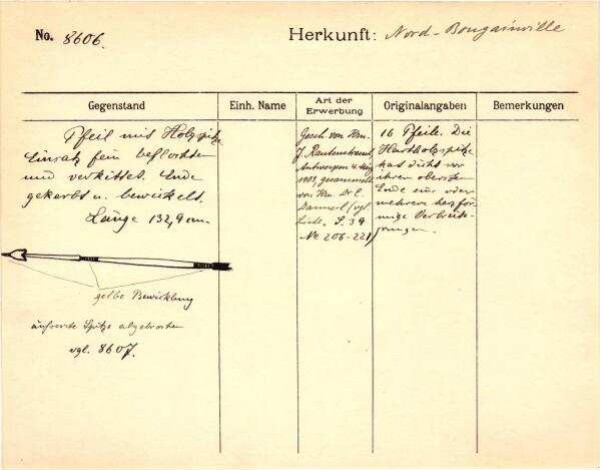 No. 8606.
Herkunft: Nord-Bougainville
Gegenstand
Einh. Name
Art der
Erwerbung
Originalangaben
Bemerkungen
Pfeil mit Holzspitze
Einsatz fein beflochten
und verkittet. Ende
gekerbt u. bewickelt.
Länge 132,9 cm.
gelbe Bewicklung
äußerste Spitze abgebrochen
vgl. 8607.
Gesch. von Hrn.
J. Rautenstrauch,
Antwerpen 4. Aug
1903, gesammelt
von Hrn. Dr.
(vgl.
Liste. S. 39
No 206-221)
16 Pfeile. Die
Hartholzspitze
hat dicht vor
ihrem obersten
Ende eine oder
mehrere herzför-
mige Verbreite-
rungen.